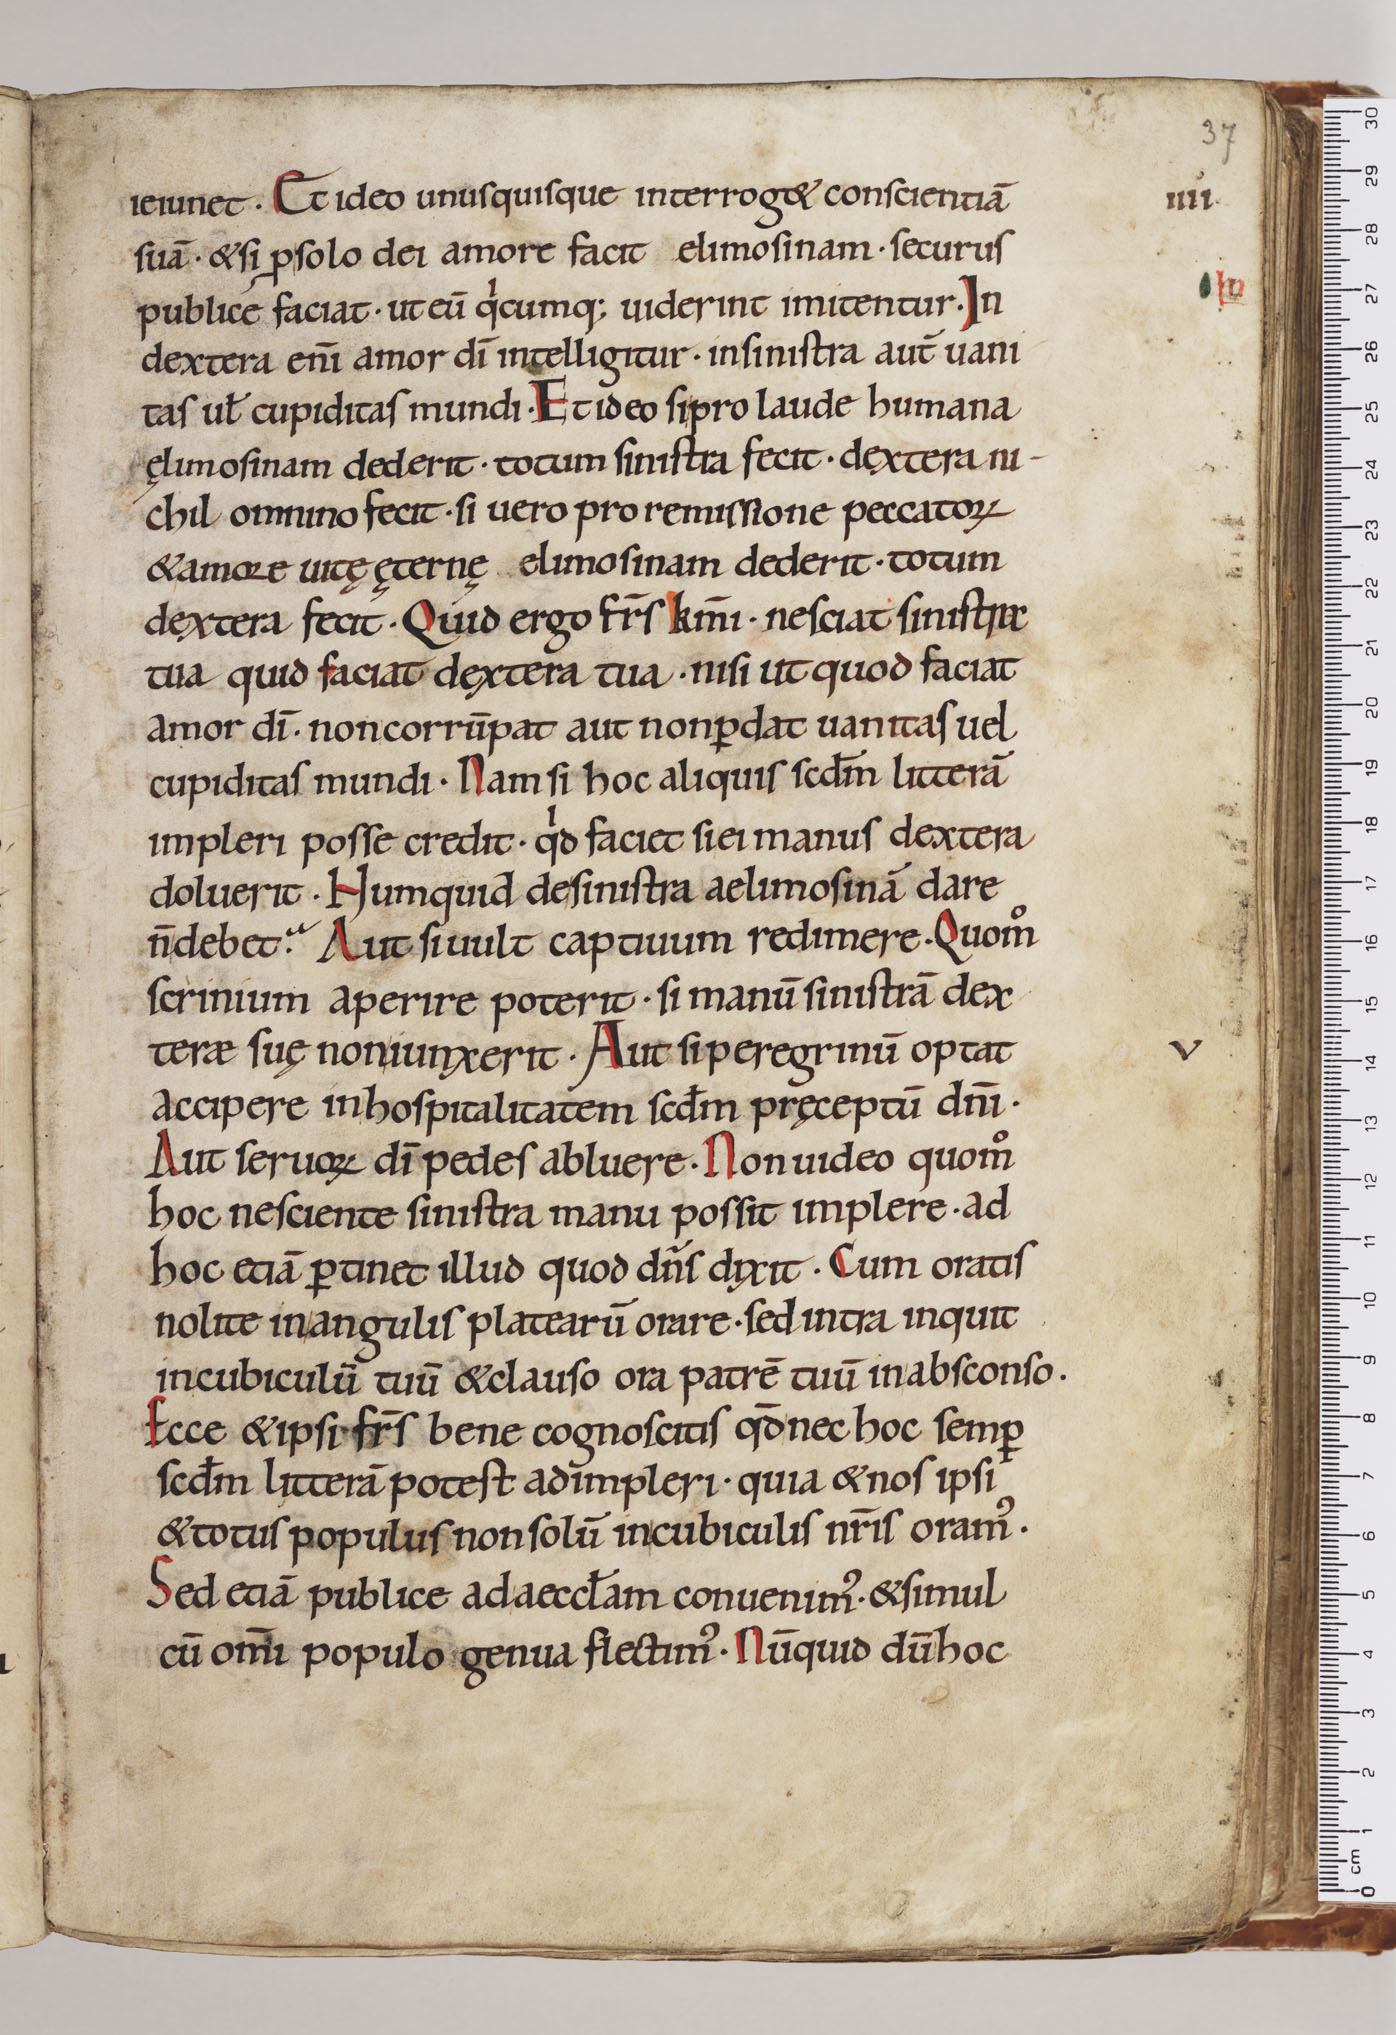 37
ieiunet · Et ideo unusquisque interrog& conscientiā
suā · &si ꝑsolo dei amore facit elimosinam · securus
publice faciat · ut eū qͥcumq; uiderint imitentur · In
dextera enī amor dī intelligitur · insinistra aut̄ uani
tas uꝉ cupiditas mundi · Et ideo si pro laude humana
ęlimosinam dederit · totum sinistra fecit · dextera ni-
chil omnino fecit · si uero pro remissione peccatoꝝ
&amore uitę ęternę elimosinam dederit · totum
dextera fecit · Quid ergo fr̄s km̄i · nesciat sinistra
tua quid faciat dextera tua · nisi ut quod faciat
amor dī · non corrūpat aut non ꝑdat uanitas uel
cupiditas mundi · Nam si hoc aliquis scd̄m litterā
impleri posse credit · qͥd faciet si ei manus dextera
doluerit · Numquid de sinistra aelimosinā dare
n̄ debet? Aut si uult captiuum redimere · Quom̊
scrinium aperire poterit · si manū sinistrā dex
teræ suę non iunxerit · Aut si peregrinū optat
accipere in hospitalitatem scd̄m pręceptū dn̄i ·
Aut seruoꝝ dī pedes abluere · Non uideo quom̊
hoc nesciente sinistra manu possit implere · ad
hoc etiā ꝑtinet illud quod dn̄s dixit · Cum oratis
nolite in angulis platearū orare · sed intra inquit
in cubiculū tuū &clauso ora patrē tuū in absconso ·
Ecce &ipsi fr̄s bene cognoscitis qd̄ nec hoc semꝑ
scd̄m litterā potest adimpleri · quia &nos ipsi
&totus populus non solū in cubiculis nr̄is oramꝰ ·
Sed etiā publice ad aeccꝉam conuenimꝰ · &simul
cū om̄i populo genua flectimꝰ · Nūquid dū hoc
iiii
v